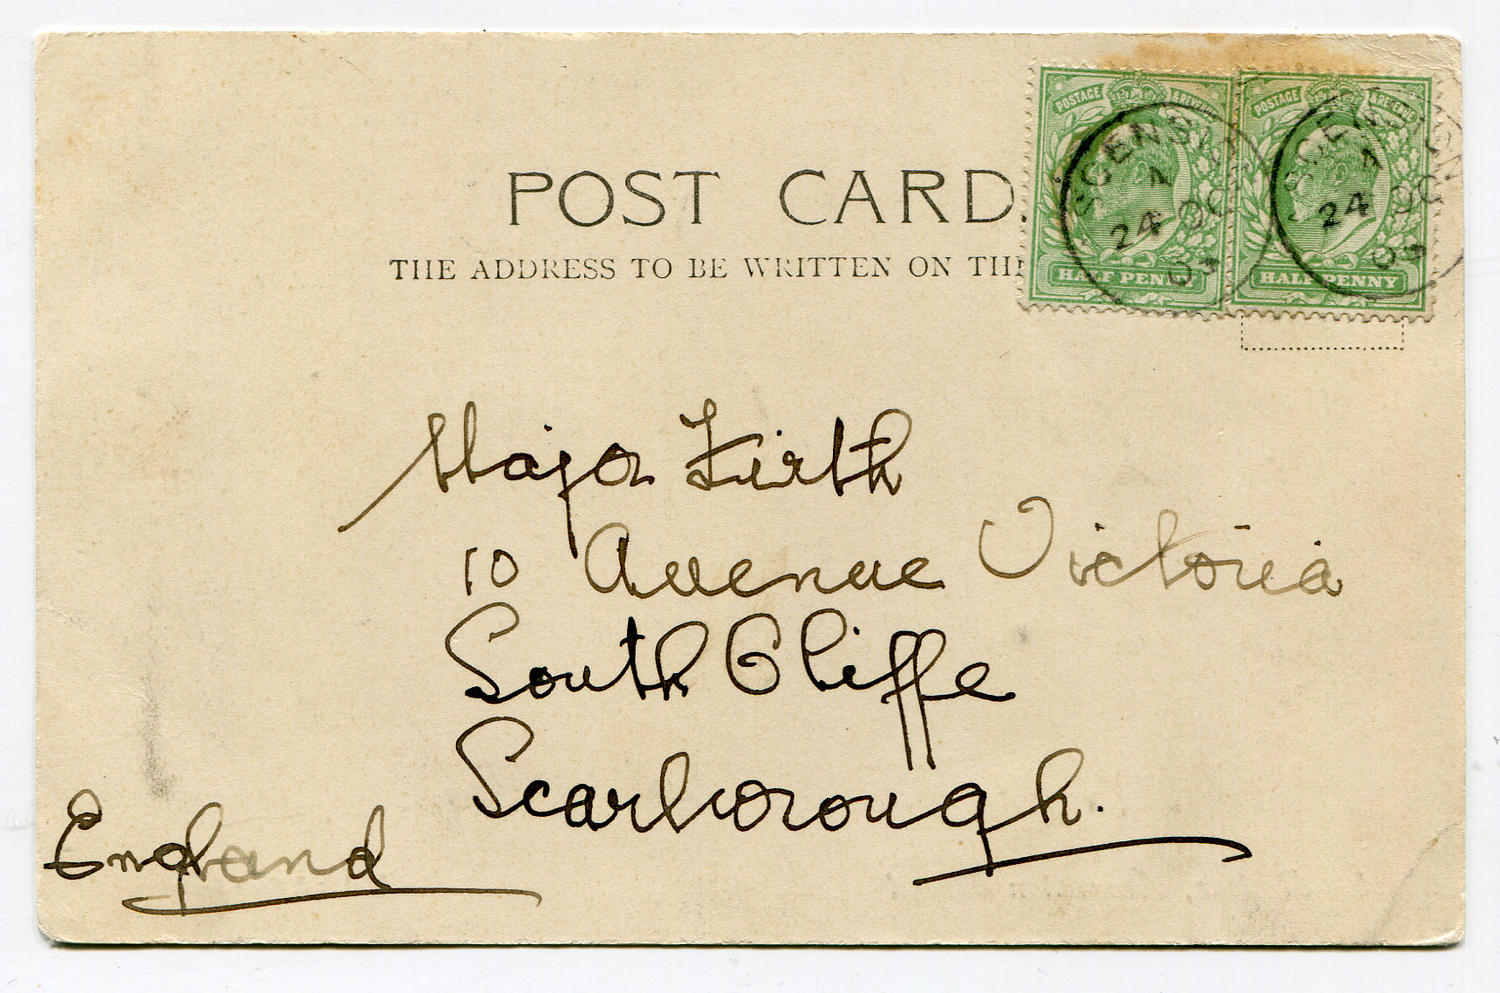 POST CARD.
THE ADDRESS TO BE WRITTEN ON
POSTAGE & REVENUE
HALF PENNY
24 OC
03
POSTAGE & REVENUE
HALF PENNY
24 OC
03
Major Firth
10 Avenue Victoria
South Cliffe
Scarborough.
England